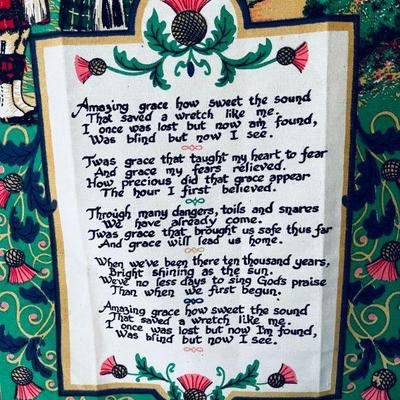 Amazing grace how sweet the sound
That saved a wretch like me.
I once was lost but now am found,
Was blind but now I see.
Twas grace that taught my heart to fear
And grace my fears relieved.
How precious did that grace appear
The hour I first believed.
Through many dangers, toils and snares
We have already come.
Twas grace that brought us safe thus far
And grace will lead us home.
When we've been there ten thousand years,
Bright shining as the sun.
We've no less days to sing God's praise
Than when we first begun.
Amazing grace how sweet the sound
That saved a wretch like me.
I once was lost but now I'm found,
Was blind but now I see.